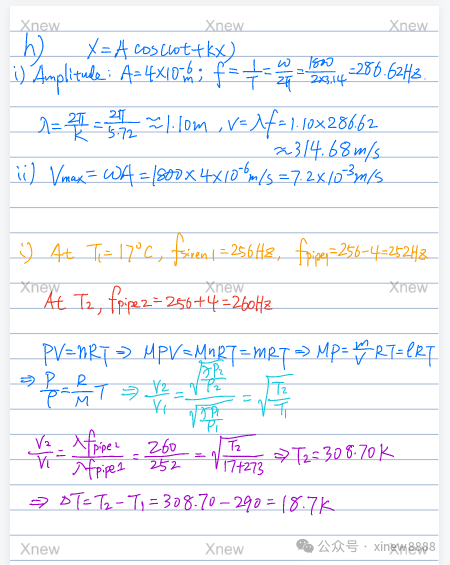 Xnew Xnew Xnew
h) X=A cos(ωt+kx)
i) Amplitude: A=4×10⁻⁶m; f=1/T=ω/2π=1800/2×3.14=286.62Hz.
λ=2π/K=2π/5.72≈1.10m, v=λf=1.10×286.62
≈314.68m/s
ii) Vmax=ωA=1800×4×10⁻⁶m/s=7.2×10⁻³m/s
Xnew Xnew Xnew
i) At T₁=17°C, fsiren1=256Hz, fpipe1=256-4=252Hz
Xnew Xnew Xnew
At T2, fpipe2=256+4=260Hz
PV=nRT⇒MPV=MnRT=mRT⇒MP=m/V RT=ℓRT
⇒P/ρ=R/M T ⇒V2/V1=√(γP2/ρ2)/√(γP1/ρ1)=√(T2/T1)
V2/V1=λfpipe2/λfpipe1=260/252=√(T2/17+273)⇒T2=308.70K
⇒ΔT=T2-T1=308.70-290=18.7K
Xnew Xnew Xnew
公众号 · xinew8888